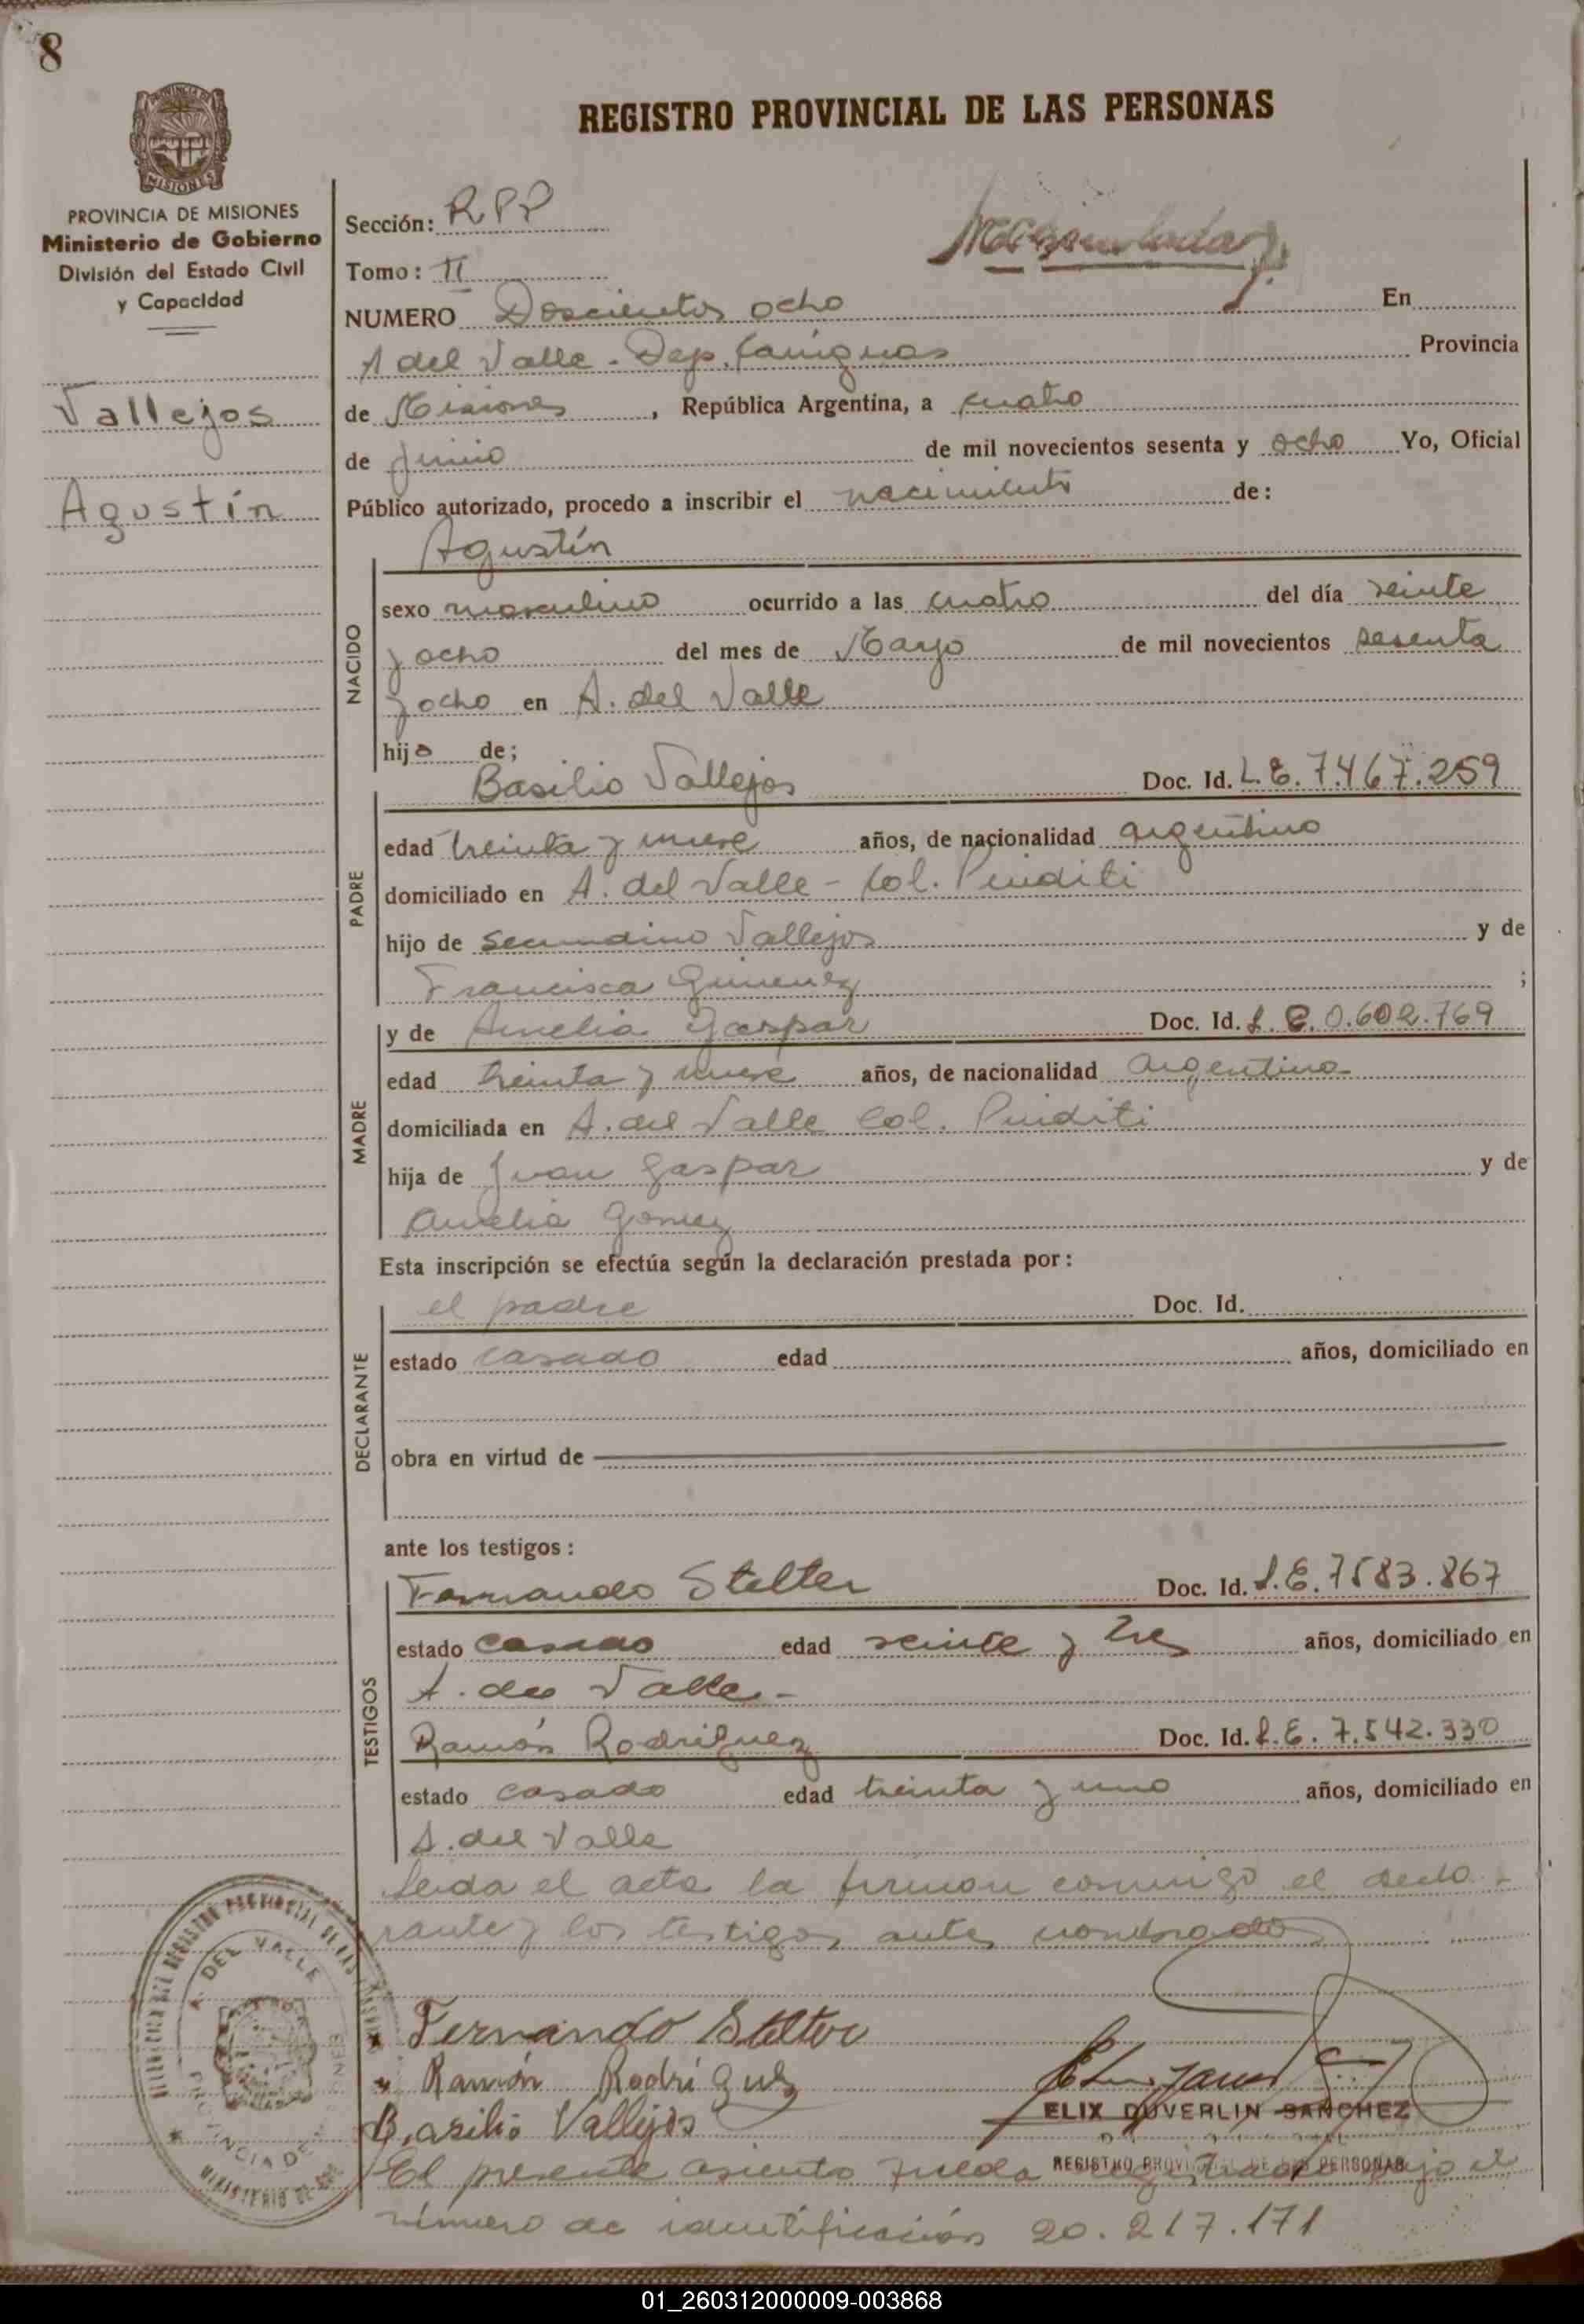 8
REGISTRO PROVINCIAL DE LAS PERSONAS
MISIONES
PROVINCIA DE MISIONES
Ministerio de Gobierno
División del Estado Civil
y Capacidad
Vallejos
Agustín
Sección: RPP
Tomo: II
NUMERO Doscientos ocho En
A del Valle - Dep. Cainguas Provincia
de Misiones, República Argentina, a cuatro
de Junio de mil novecientos sesenta y ocho Yo, Oficial
Público autorizado, procedo a inscribir el nacimiento de:
Agustín
NACIDO
sexo masculino ocurrido a las cuatro del día veinte
y ocho del mes de Mayo de mil novecientos sesenta
y ocho en A. del Valle
hijo de;
Basilio Vallejos Doc. Id. L.E. 7.467.259
PADRE
edad treinta y nueve años, de nacionalidad argentino
domiciliado en A. del Valle - Col. Pindití
hijo de Secundino Vallejos y de
Francisca Gimenez ;
MADRE
y de Amelia Gaspar Doc. Id. L.C. 0.602.769
edad treinta y nueve años, de nacionalidad argentina
domiciliada en A. del Valle Col. Pindití
hija de Juan Gaspar y de
Amelia Gomez
Esta inscripción se efectúa según la declaración prestada por:
DECLARANTE
el padre Doc. Id.
estado casado edad años, domiciliado en
obra en virtud de
ante los testigos:
TESTIGOS
Fernando Stelter Doc. Id. L.E. 7583.867
estado casado edad veinte y tres años, domiciliado en
A. del Valle -
Ramón Rodriguez Doc. Id. L.E. 7.542.330
estado casado edad treinta y uno años, domiciliado en
A. del Valle
Leida el acta la firman conmigo el decla-
rante y los testigos antes nombrados
A. DEL VALLE
Fernando Stelter
Ramón Rodríguez
Basilio Vallejos
ELIX DUVERLIN SANCHEZ
REGISTRO PROVINCIAL DE LAS PERSONAS
El presente asiento queda registrado bajo el
número de identificación 20.217.171
01_260312000009-003868